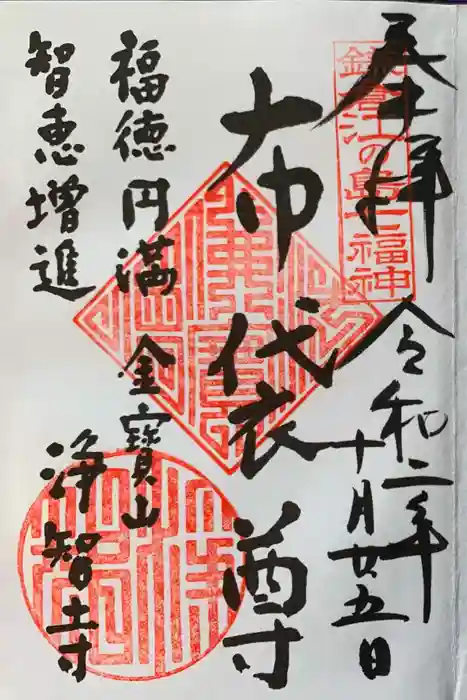 奉拝
鎌倉江の島七福神
令和二年
十月廿五日
布袋尊
福徳円満
智恵増進
金寶山
浄智寺